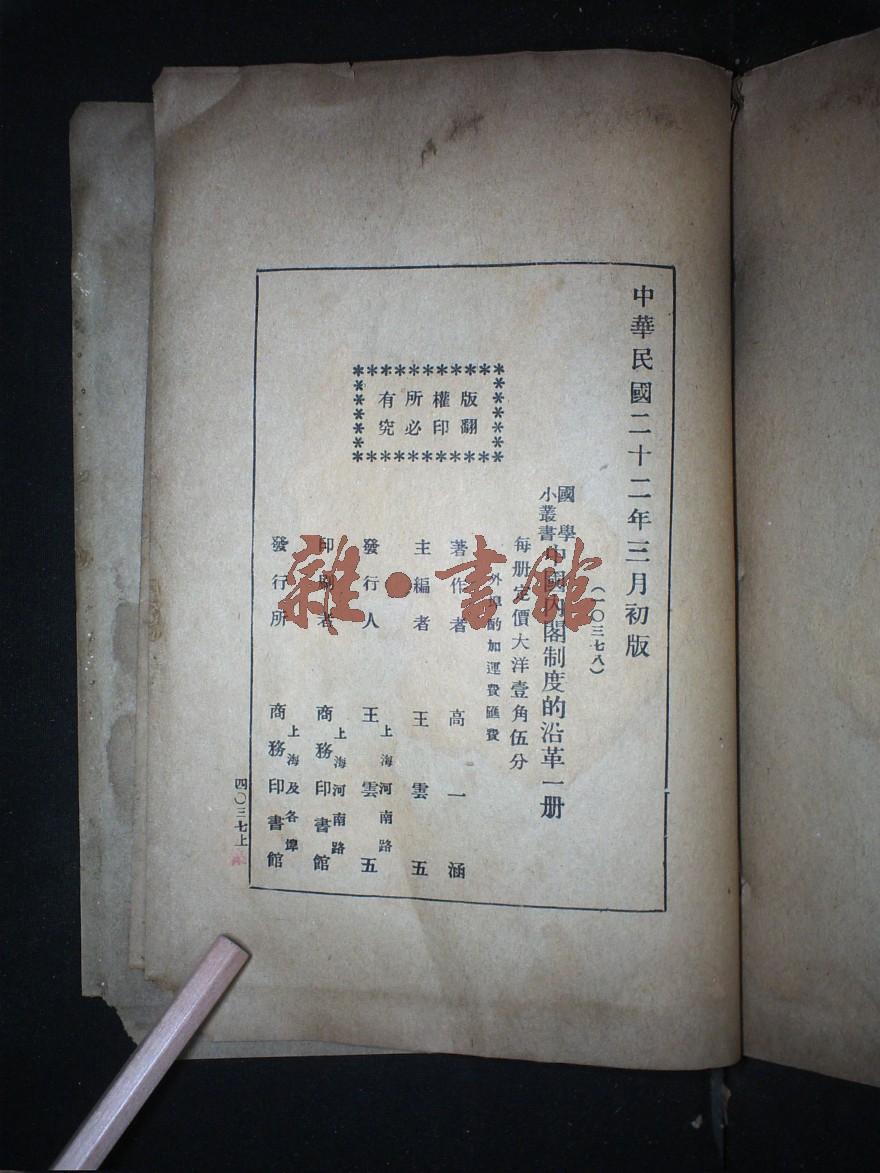 中華民國二十二年三月初版
(一〇三七八)
國學
小叢書
中國內閣制度的沿革一册
每册定價大洋壹角伍分
外埠酌加運費匯費
版權所有
翻印必究
著作者 高一涵
主編者 王雲五
上海河南路
發行人 王雲五
上海河南路
印刷者 商務印書館
上海及各埠
發行所 商務印書館
四〇三七上
雜·書館